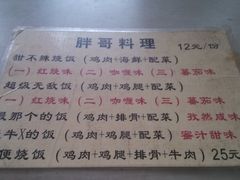 胖哥料理 12元/份
甜不辣烧饭（鸡肉+海鲜+配菜）
（一）红烧味（二）咖喱味（三）蕃茄味
超级无敌饭（鸡肉+鸡腿+配菜）
（一）红烧味（二）咖喱味（三）蕃茄味
最那个的饭（鸡肉+排骨+配菜）孜然咸味
最牛X的饭（鸡肉+鸡腿+配菜）蜜汁甜味
便烧饭（鸡肉+鸡腿+排骨+牛肉）25元